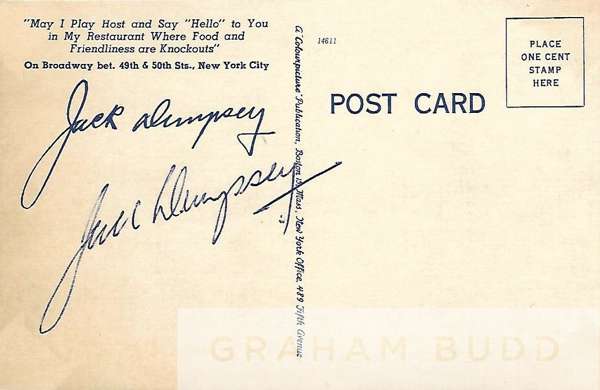 "May I Play Host and Say "Hello" to You
in My Restaurant Where Food and
Friendliness are Knockouts"
On Broadway bet. 49th & 50th Sts., New York City
Jack Dempsey
Jack Dempsey
A "Colourpicture" Publication, Boston 15, Mass., New York Office, 489 Fifth Avenue
14611
POST CARD
PLACE
ONE CENT
STAMP
HERE
GRAHAM BUDD